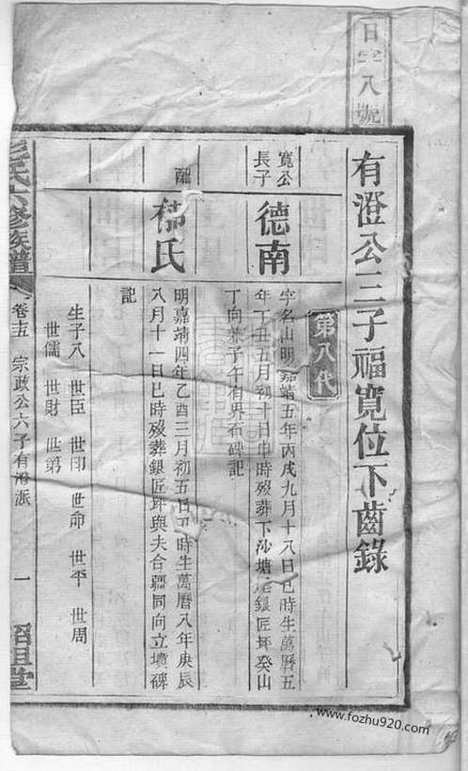 日字八號
有澄公三子福寬位下齒錄
第八代
寬公長子
德南
字名山明嘉靖五年丙戌九月十八日巳時生萬曆五
年丁丑五月初十日申時歿葬下沙塘銀匠坪癸山
丁向兼子午有界石碑記
配
氏
明嘉靖四年乙酉三月初五日丑時生萬曆八年庚辰
八月十一日巳時歿葬銀匠坪與夫合疆同向立墳碑
記
生子八 世臣 世印 世命 世平 世周
世儒 世財 世第
氏六修族譜
卷 宗政公六子有澄派
一
www.fozhu920.com